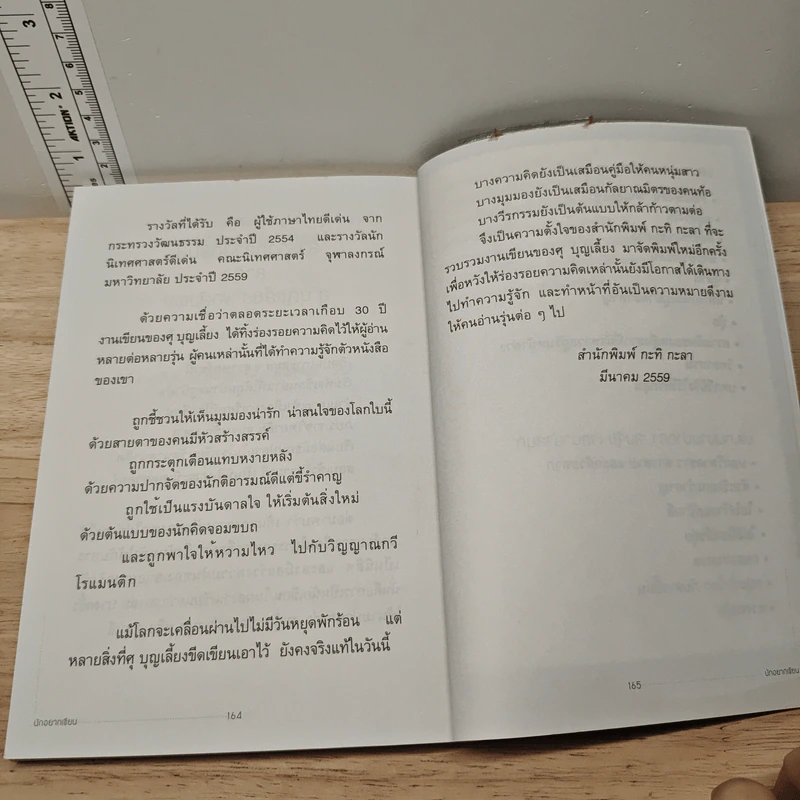 3
8
7
6
2
5
4
3
1
2
1
AKTION
รางวัลที่ได้รับ คือ ผู้ใช้ภาษาไทยดีเด่น จาก
กระทรวงวัฒนธรรม ประจำปี 2554 และรางวัลนัก
นิเทศศาสตร์ดีเด่น คณะนิเทศศาสตร์ จุฬาลงกรณ์
มหาวิทยาลัย ประจำปี 2559
ด้วยความเชื่อว่าตลอดระยะเวลาเกือบ 30 ปี
งานเขียนของศุ บุญเลี้ยง ได้ทิ้งร่องรอยความคิดไว้ให้ผู้อ่าน
หลายต่อหลายรุ่น ผู้คนเหล่านั้นที่ได้ทำความรู้จักตัวหนังสือ
ของเขา
ถูกชี้ชวนให้เห็นมุมมองน่ารัก น่าสนใจของโลกใบนี้
ด้วยสายตาของคนมีหัวสร้างสรรค์
ถูกกระตุกเตือนแทบหงายหลัง
ด้วยความปากจัดของนักติอารมณ์ดีแต่ขี้รำคาญ
ถูกใช้เป็นแรงบันดาลใจ ให้เริ่มต้นสิ่งใหม่
ด้วยต้นแบบของนักคิดจอมขบถ
และถูกพาใจให้หวามไหว ไปกับวิญญาณกวี
โรแมนติก
แม้โลกจะเคลื่อนผ่านไปไม่มีวันหยุดพักร้อน แต่
หลายสิ่งที่ศุ บุญเลี้ยงขีดเขียนเอาไว้ ยังคงจริงแท้ในวันนี้
นักอยากเขียน 164
บางความคิดยังเป็นเสมือนคู่มือให้คนหนุ่มสาว
บางมุมมองยังเป็นเสมือนกัลยาณมิตรของคนท้อ
บางวีรกรรมยังเป็นต้นแบบให้กล้าก้าวตามต่อ
จึงเป็นความตั้งใจของสำนักพิมพ์ กะทิ กะลา ที่จะ
รวบรวมงานเขียนของศุ บุญเลี้ยง มาจัดพิมพ์ใหม่อีกครั้ง
เพื่อหวังให้ร่องรอยความคิดเหล่านั้นยังมีโอกาสได้เดินทาง
ไปทำความรู้จัก และทำหน้าที่อันเป็นความหมายดีงาม
ให้คนอ่านรุ่นต่อ ๆ ไป
สำนักพิมพ์ กะทิ กะลา
มีนาคม 2559
165 นักอยากเขียน